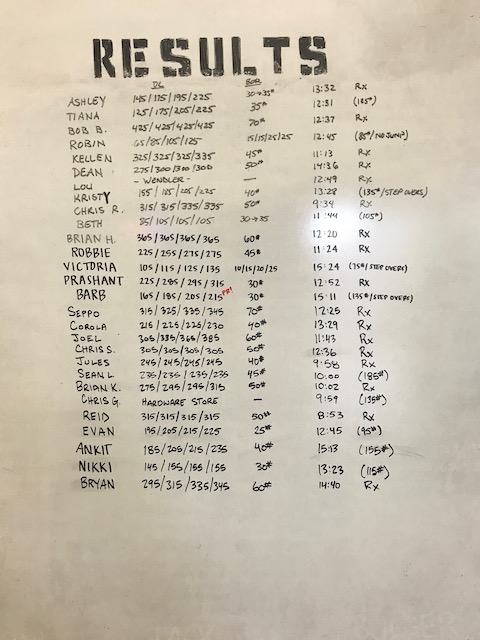 RESULTS
DL BOR
ASHLEY 145/175/195/225 30→35# 13:32 Rx
TIANA 125/175/205/225 35# 12:31 (125#)
BOB B. 425/425/425/425 70# 12:37 Rx
ROBIN 65/85/105/125 15/15/25/25 12:45 (85#/NO JUMP)
KELLEN 325/325/325/335 45# 11:13 Rx
DEAN 275/300/300/300 50# 14:36 Rx
LOU - WENDLER - — 12:49 Rx
KRISTY 155/185/205/225 40# 13:28 (135#/STEP OVERS)
CHRIS R. 315/315/335/335 50# 9:34 Rx
BETH 95/105/105/105 30→35 11:44 (105#)
BRIAN H. 365/365/365/365 60# 12:20 Rx
ROBBIE 225/255/275/275 45# 11:24 Rx
VICTORIA 105/115/125/135 10/15/20/25 15:24 (75#/STEP OVERS)
PRASHANT 225/285/295/315 30# 12:52 Rx
BARB 165/185/205/215 PR! 30# 15:11 (135#/STEP OVERS)
SEPPO 315/325/335/345 70# 12:25 Rx
COROLA 215/225/225/230 40# 13:29 Rx
JOEL 305/335/365/385 60# 11:43 Rx
CHRIS S. 305/305/305/305 50# 12:36 Rx
JULES 245/245/245/245 40# 9:58 Rx
SEAN L. 235/235/235/235 45# 10:00 (185#)
BRIAN K. 275/295/295/315 50# 10:02 Rx
CHRIS G. HARDWARE STORE — 9:59 (135#)
REID 315/315/315/315 50# 8:53 Rx
EVAN 195/205/215/225 25# 12:45 (95#)
ANKIT 185/205/215/235 40# 15:13 (155#)
NIKKI 145/155/155/155 30# 13:23 (115#)
BRYAN 295/315/335/345 60# 14:40 Rx